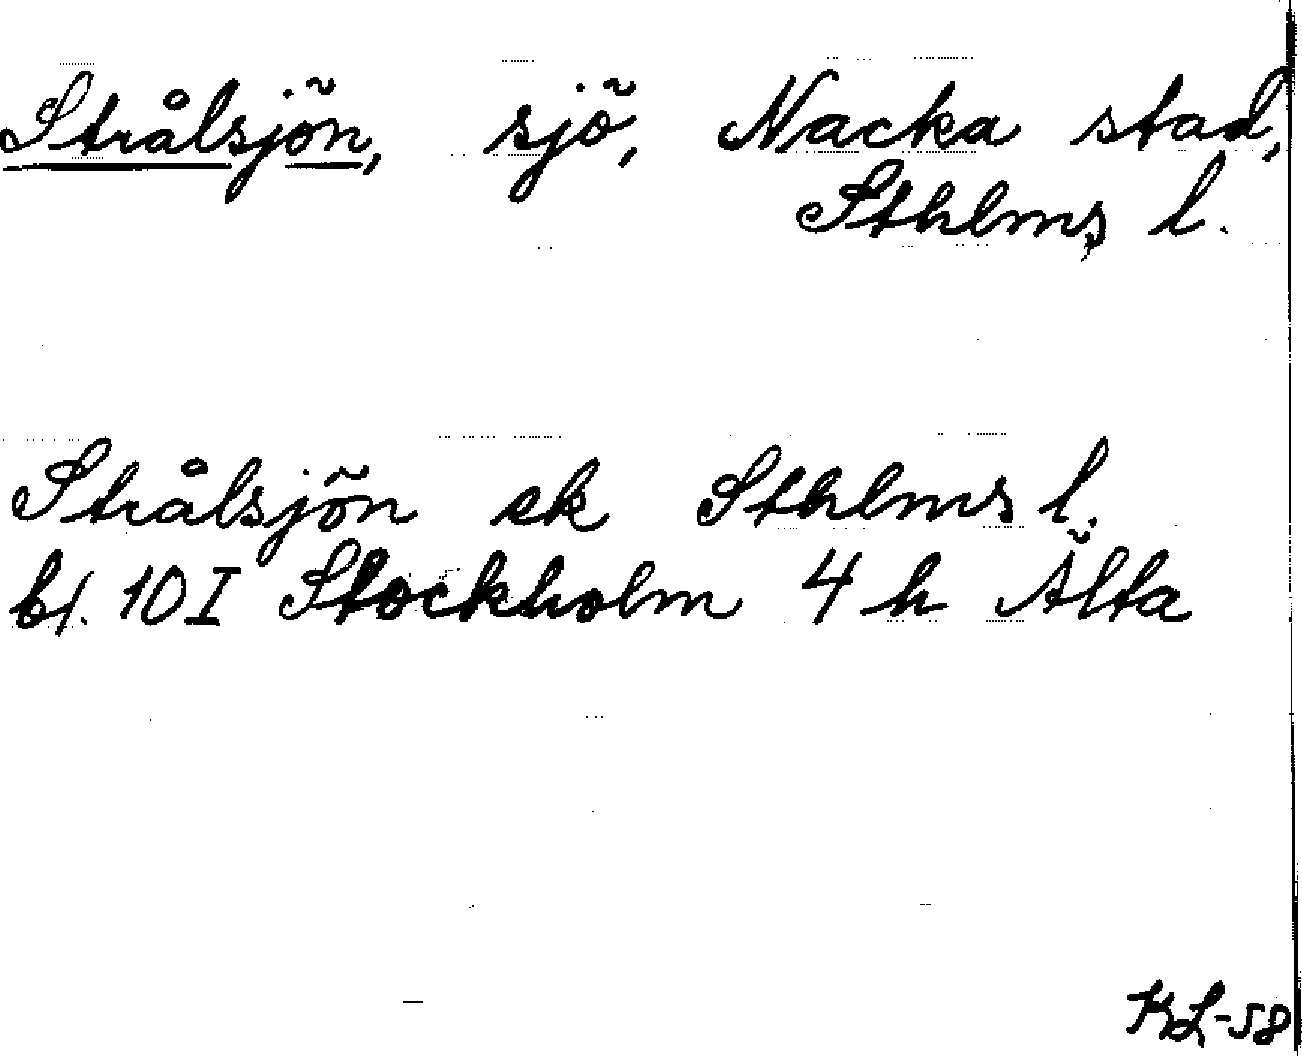 Strålsjön, sjö, Nacka stad,
Sthlms l.
Strålsjön ek Sthlms l.
bl. 10I Stockholm 4 h Älta
KL-58